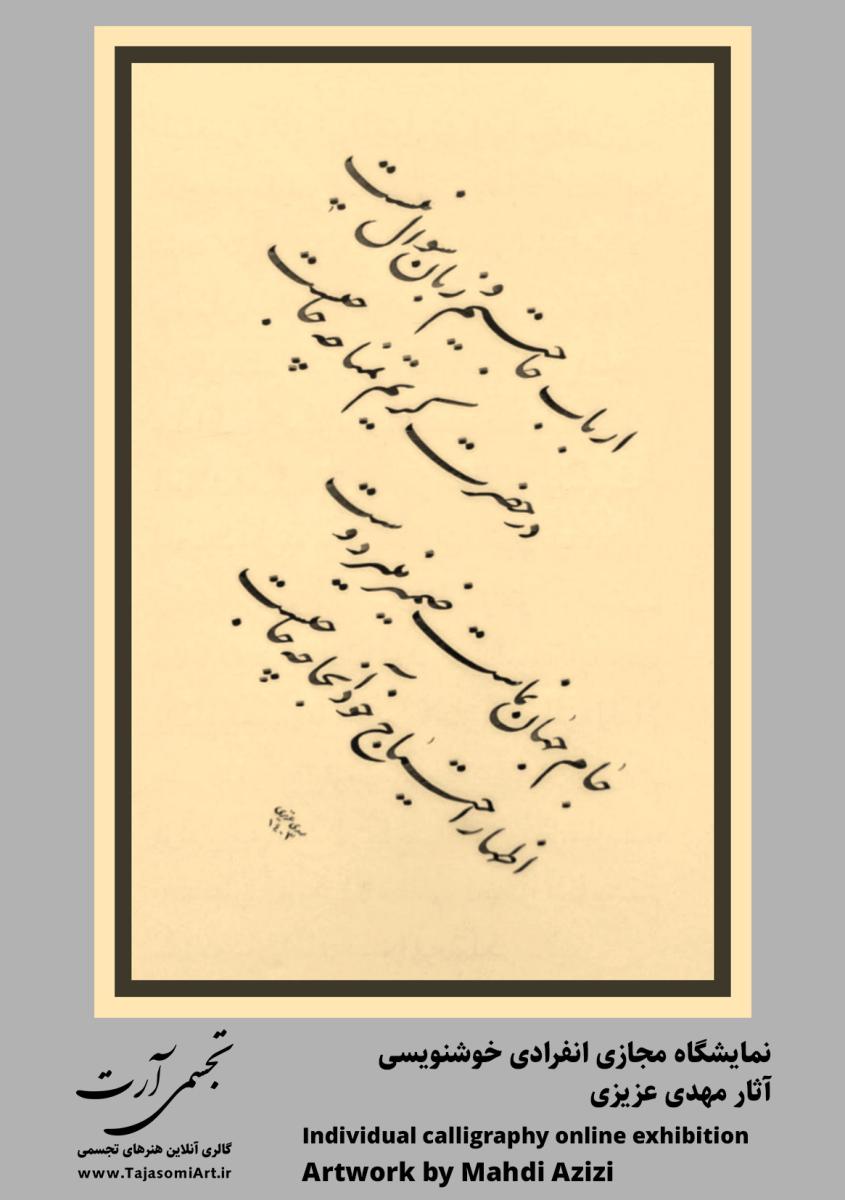 ارباب حاجتیم و زبان سوال نیست
در حضرت کریم تمنا چه حاجتست
جام جهان نماست ضمیر منیر دوست
اظهار احتیاج خود آنجا چه حاجتست
مهدی عزیزی
۱۴۰۳
نمایشگاه مجازی انفرادی خوشنویسی
آثار مهدی عزیزی
Individual calligraphy online exhibition
Artwork by Mahdi Azizi
تجسمی آرت
گالری آنلاین هنرهای تجسمی
www.TajasomiArt.ir